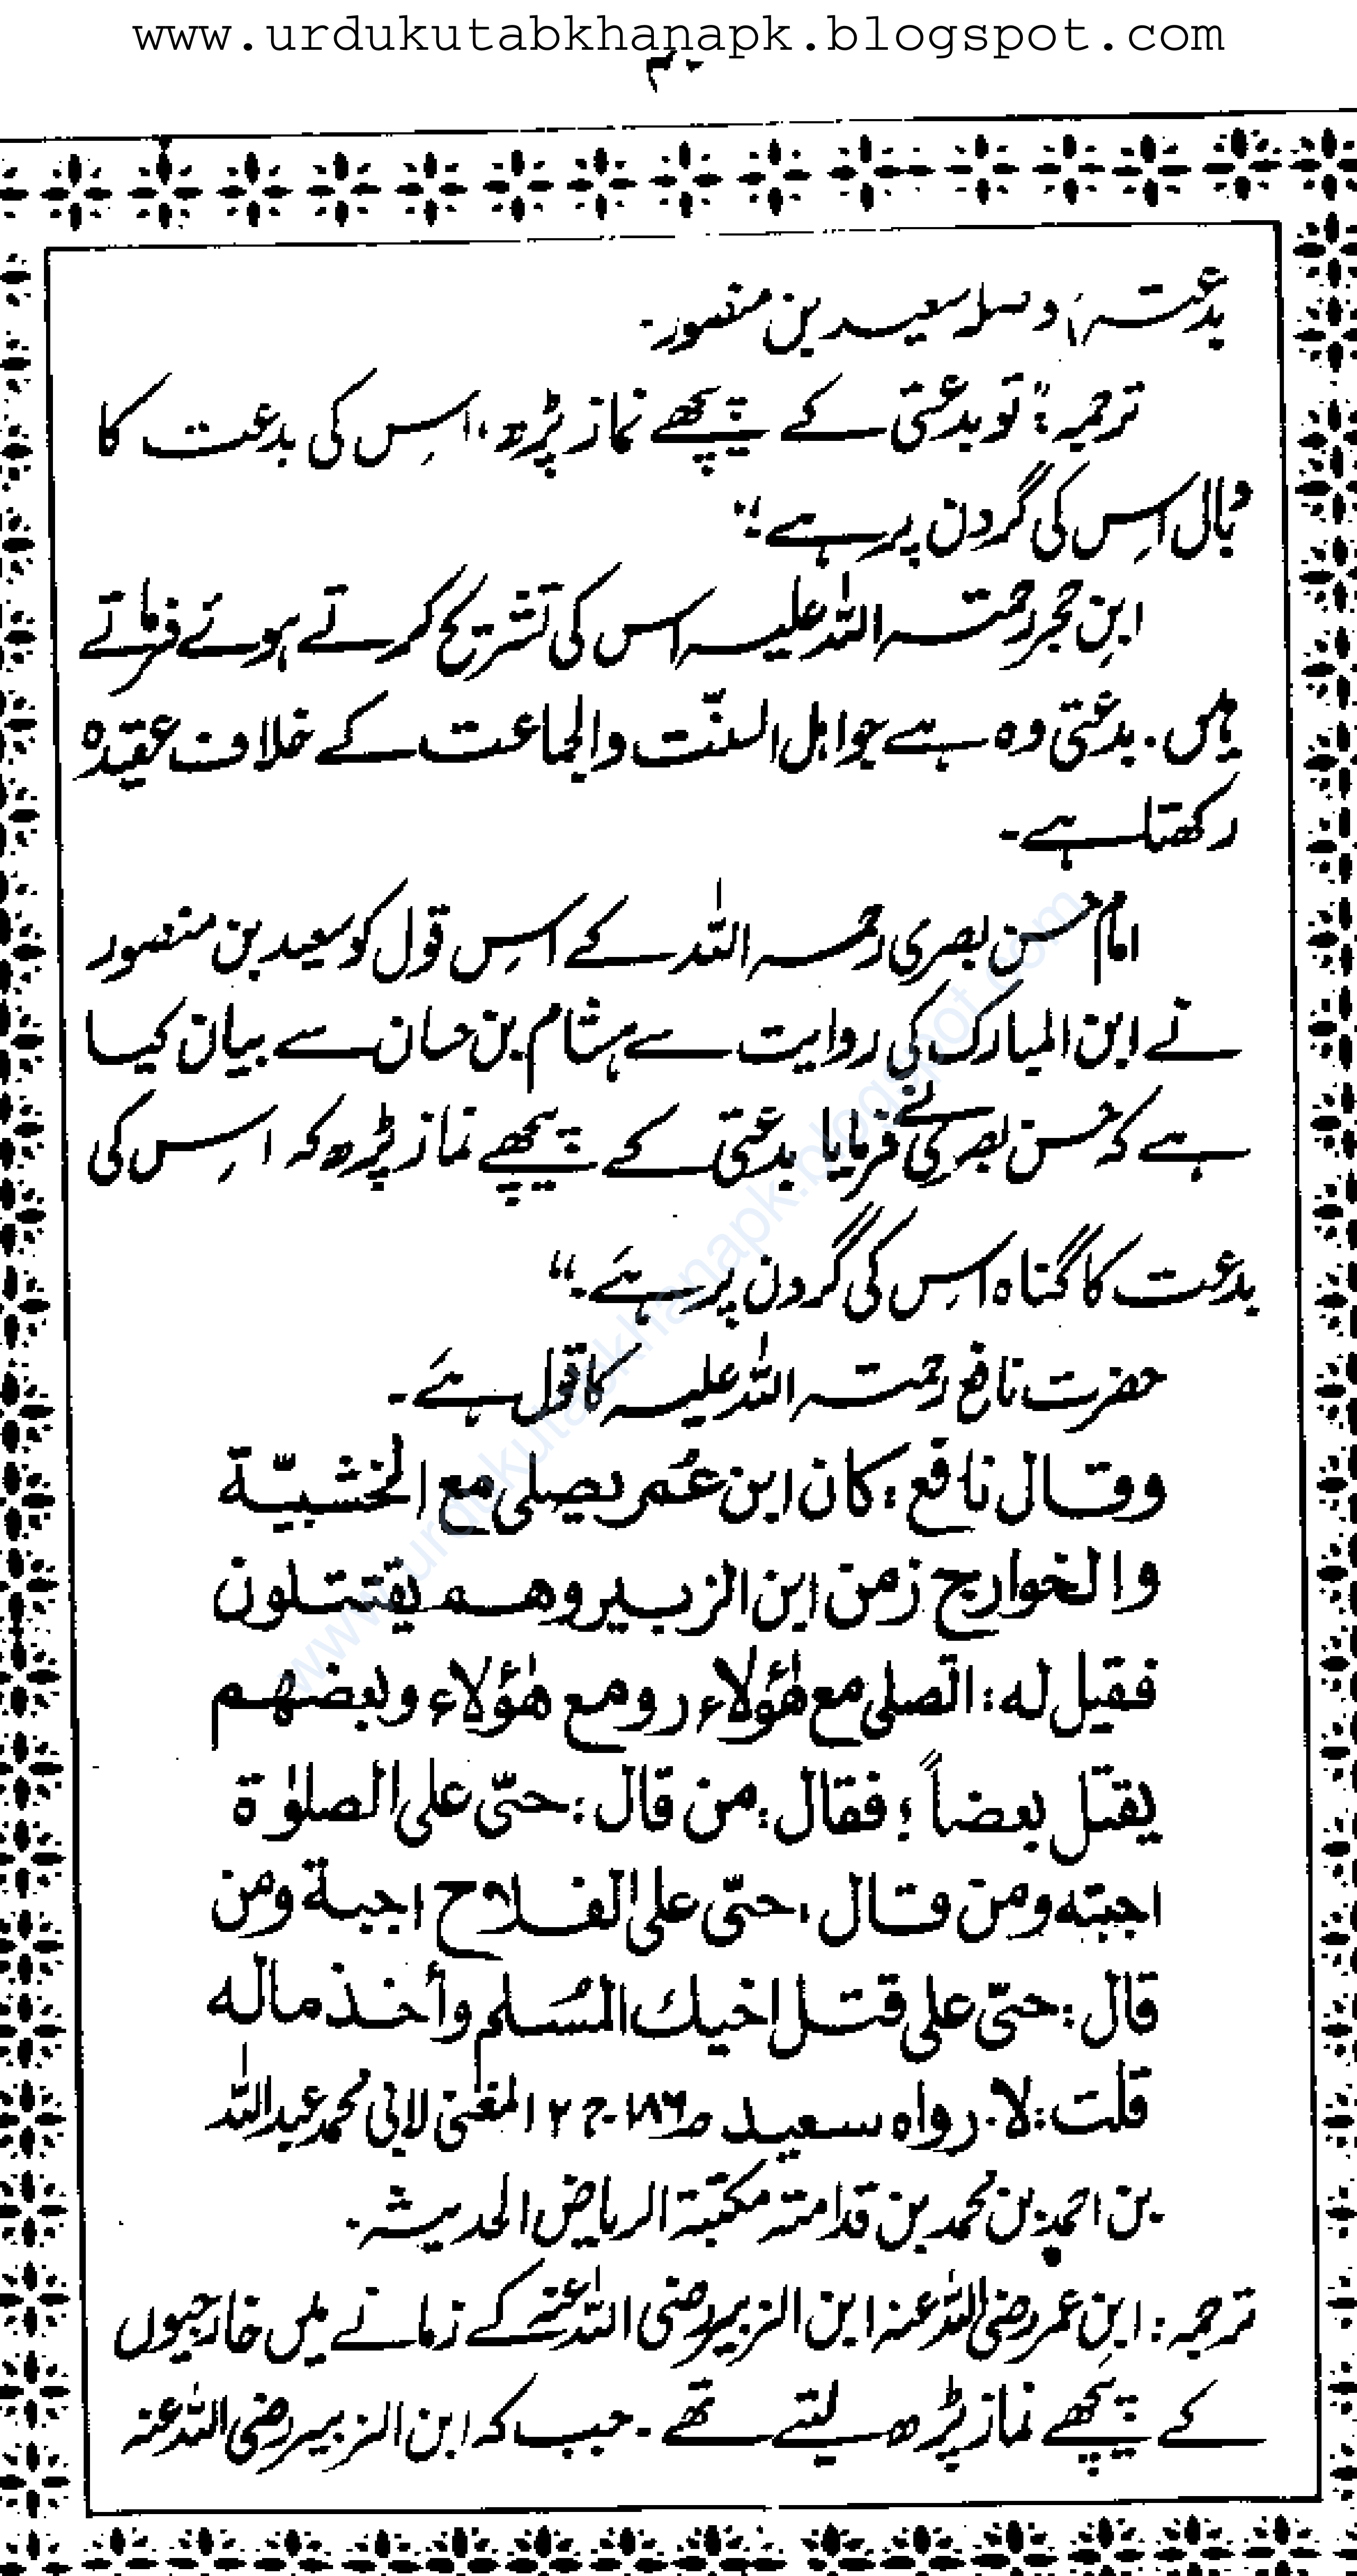 www.urdukutabkhanapk.blogspot.com
۴۰
بدعتہ، وصلہ سعید بن منصور۔
ترجمہ: "تو بدعتی کے پیچھے نماز پڑھ، اس کی بدعت کا
وبال اس کی گردن پر ہے"
ابن حجر رحمتہ اللہ علیہ اس کی تشریح کرتے ہوئے فرماتے
ہیں۔ بدعتی وہ ہے جو اہل السنّت والجماعت کے خلاف عقیدہ
رکھتا ہے۔
امام حسن بصری رحمہ اللہ کے اس قول کو سعید بن منصور
نے ابن المبارک کی روایت سے ہشام بن حسان سے بیان کیا
ہے کہ حسن بصری نے فرمایا بدعتی کے پیچھے نماز پڑھ کہ اس کی
بدعت کا گناہ اس کی گردن پر ہے۔"
حضرت نافع رحمتہ اللہ علیہ کا قول ہے۔
وقال نافع: کان ابن عُمر یصلی مع الخشبیّة
والخوارج زمن ابن الزبیر وھم یقتتلون
فقیل له: اتصلی مع ھٰؤلاء رومع ھٰؤلاء وبعضھم
یقتل بعضاً؟ فقال: من قال: حتّی علی الصلوٰة
اجبته ومن قال، حتّی علی الفلاح اجبة ومن
قال: حتّی علی قتل اخیك المُسلم وأخذ ماله
قلت: لا. رواه سعید ص۱۸۶۔ج ۲ المغنی لابی محمد عبداللہ
بن احمد بن محمد بن قدامتہ مکتبة الریاض الحدیثہ۔
ترجمہ: ابن عمر رضی اللہ عنہ ابن الزبیر رضی اللہ عنہ کے زمانے میں خارجیوں
کے پیچھے نماز پڑھ لیتے تھے۔ جب کہ ابن الزبیر رضی اللہ عنہ
www.urdukutabkhanapk.blogspot.com